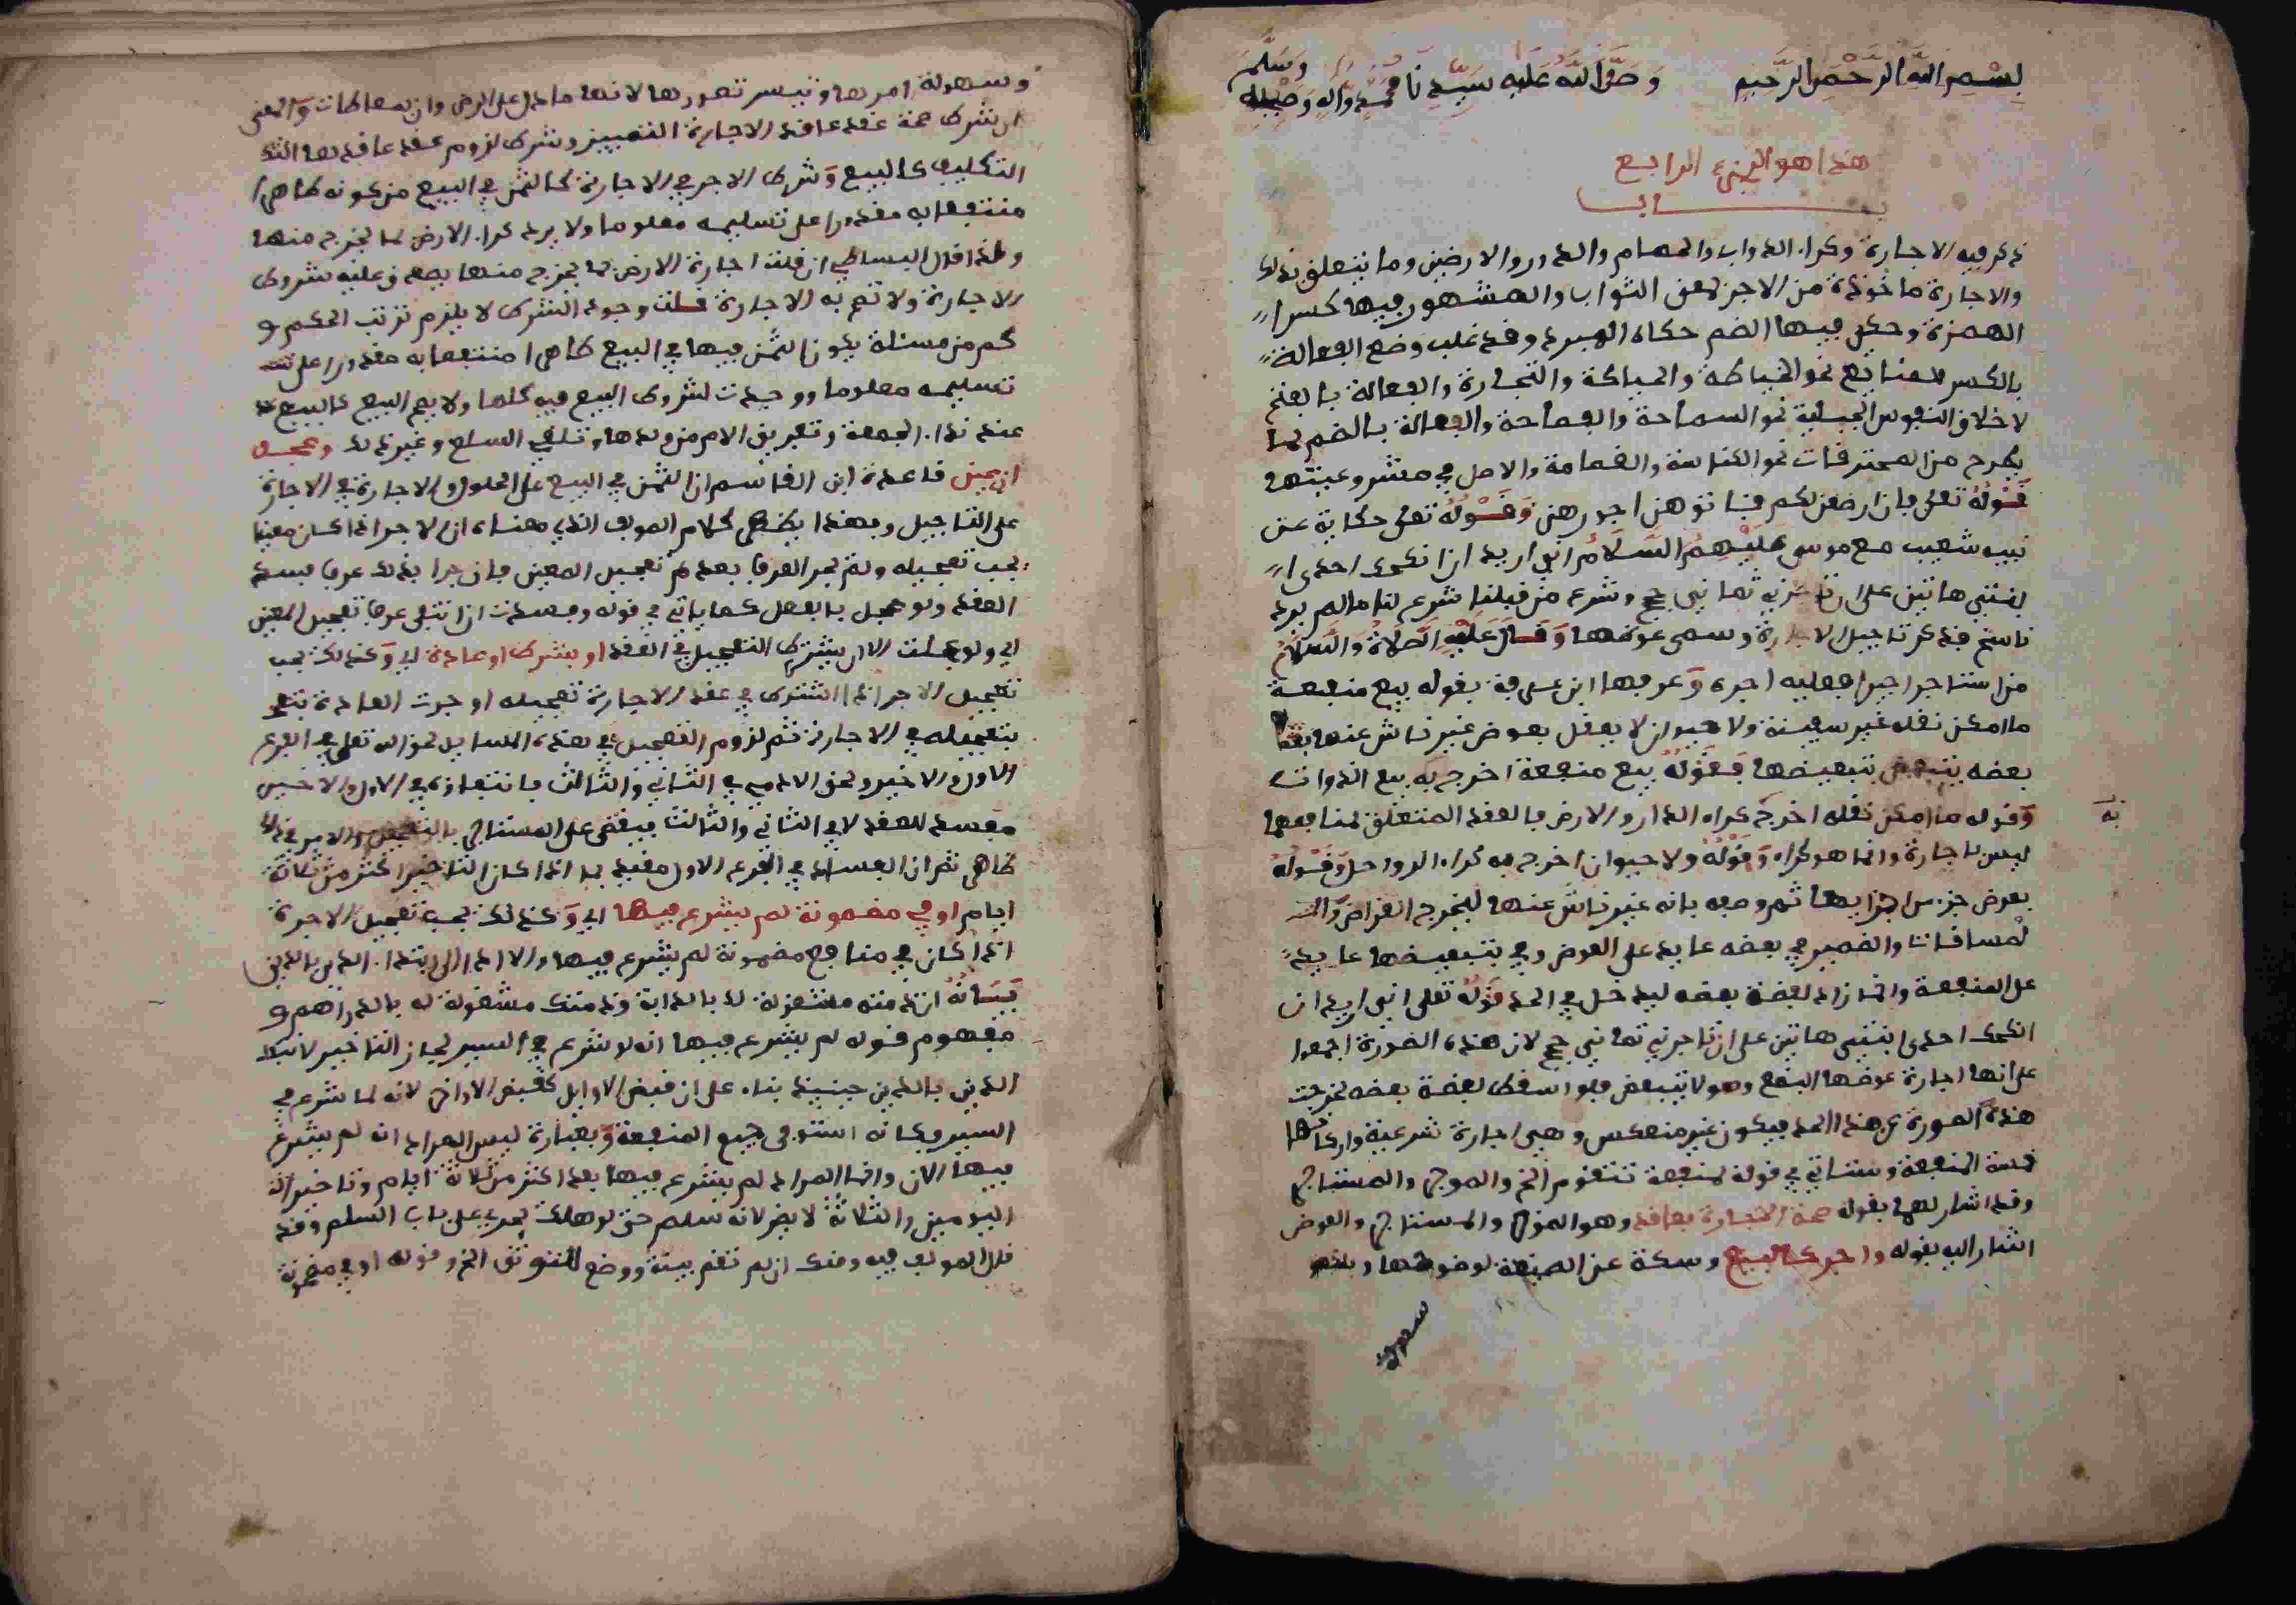 بسم الله الرحمن الرحيم وصلى الله عليه سيدنا محمد وآله وصحبه وسلم
هذا هو الجزء الرابع
باب
ذكر فيه الاجارة وكراء الدواب والحمام والدور والارضين وما يتعلق بذلك
والاجارة ماخوذة من الاجر بمعنى الثواب والمشهور فيها كسر
الهمزة وحكي فيها الضم حكاه المبرد وقد غلب وضع الفعالة
بالكسر للصنايع نحو الخياطة والحياكة والتجارة والفعالة بالفتح
لاخلاق النفوس الجبلية نحو السماحة والفصاحة والفعالة بالضم لما
يطرح من المحتقرات نحو الكناسة والقمامة والاصل في مشروعيتها
قوله تعلى فان ارضعن لكم فئاتوهن اجورهن وقوله تعلى حكاية عن
نبيه شعيب مع موسى عليهم السلام اني اريد ان انكحك احدى
ابنتي هاتين على ان تاجرني ثماني حجج وشرع من قبلنا شرع لنا ما لم يرد
ناسخ فذكر تاجيل الاجارة وسمى عوضها وقال عليه الصلاة والسلام
من استاجر اجيرا فعليه اجره وعرفها ابن عرفة بقوله بيع منفعة
ما امكن نقله غير سفينة ولا حيوان لا يعقل بعوض غير ناش عنها
بعضه يتبعض بتبعيضها فقوله بيع منفعة اخرج به بيع الذوات
وقوله ما امكن نقله اخرج كراء الدار والارض فالعقد المتعلق بمنافعها
ليس باجارة وانما هو كراء وقوله ولا حيوان اخرج به كراء الرواحل وقوله
بعوض جزء من اجزايها ثم وصفه بانه غير ناش عنها ليخرج القراض
المساقات والضمير في بعضه عايد على العوض وفي بتبعيضها عايد
على المنفعة وانما زاد لفظة بعضه ليدخل في الحد قوله تعلى اني اريد ان
انكحك احدى ابنتي هاتين على ان تاجرني ثماني حجج لان هذه الصورة اجمعوا
على انها اجارة عوضها البضع وهو لا يتبعض فلو اسقط لفظة بعضه لخرجت
هذه الصورة من هذا الحد فيكون غير منعكس وهي اجارة شرعية واركانها
خمسة المنفعة وستاتي في قوله بمنفعة تتقوم الخ والموجر والمستاجر
وقد اشار لهما بقوله صحة الاجارة بعاقد وهو الموجر والمستاجر والعوض
اشار اليه بقوله واجر كالبيع وسكت عن الصيغة لوضوحها
وسهولة
وسهولة امرها وتيسر تصورها لانها ما دل على الرضى وان بمعاطات والمعنى
ان شرط صحة عقد عاقد الاجارة التمييز وشرط لزوم عقد عاقدها
التكليف كالبيع وشرط الاجر في الاجارة كالثمن في البيع من كونه طاهرا
منتفعا به مقدورا على تسليمه معلوما ولا يرد كراء الارض بما يخرج منها
ولذا قال البساطي ان قلت اجارة الارض بما يخرج منها يصدق عليه شروط
الاجارة ولا تتم به الاجارة قلت وجود الشرط لا يلزم ترتب الحكم و
كم من مسئلة يكون الثمن فيها في البيع طاهرا منتفعا به مقدورا على
تسليمه معلوما ووجدت شروط البيع فيه كلها ولا يتم البيع كالبيع
عند نداء الجمعة وتفريق الام من ولدها وتلقي السلع وغير ذلك وعجل
ان عين قاعدة ابن القاسم ان الثمن في البيع على الحلول والاجارة في الاجارة
على التاجيل وبهذا يظهر كلام المولف الذي معناه ان الاجر اذا كان معينا
يجب تعجيله ولم يجر العرف بعدم تعجيل المعين فان جرا بذلك عرف فسد
العقد ولو عجل بالفعل كما ياتي في قوله وفسدت ان انتفى عرف تعجيل المعين
اي ولو عجلت الا ان يشترط التعجيل في العقد او بشرط او عادة اي وكذلك يجب
تعجيل الاجر اذا اشترط في عقد الاجارة تعجيله او جرت العادة
بتعجيله في الاجارة ثم لزوم التعجيل في هذه المسايل لحق الله تعلى في الفرع
الاول والاخير ولحق الادمي في الثاني والثالث فانتفاؤه في الاول والاخير
مفسد للعقد لا في الثاني والثالث فيقضى على المستاجر بالتعجيل والامر في ذلك
ظاهر ثم ان الفساد في الفرع الاول مقيد بما اذا كان التاخير اكثر من ثلاثة
ايام او في مضمونة لم يشرع فيها اي وكذلك يجب تعجيل الاجرة
اذا كان في منافع مضمونة لم يشرع فيها والا ادى الى ابتداء الدين بالدين
بيانه ان ذمته مشغولة لك بالدابة وذمتك مشغولة له بالدراهم و
مفهوم قوله لم يشرع فيها انه لو شرع في السير لجاز التاخير لانتفاء
الدين بالدين حينيذ بناء على ان قبض الاوايل كقبض الاواخر لانه لما شرع في
السير فكانه استوفى جميع المنفعة وبعبارة ليس المراد انه لم يشرع
فيها الان وانما المراد لم يشرع فيها بعد اكثر من ثلاثة ايام وتاخير
اليومين والثلاثة لا يضر لانه سلم حتى لو هلك يجري على باب السلم وقد
قال المولف فيه ومنك ان لم تقم بينة ووضع للتوثق الخ وقوله او في مضمونة